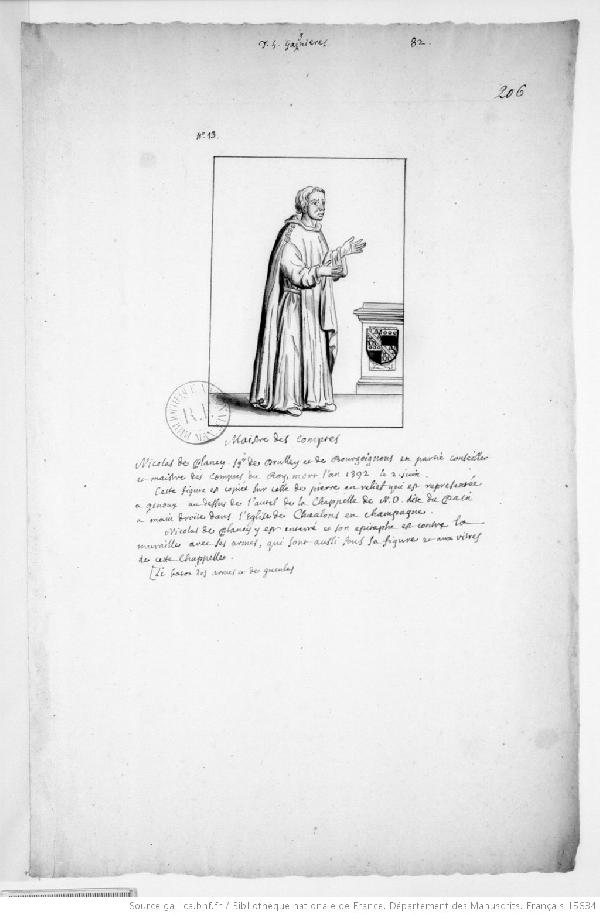 82.
206
N.o 13.
Maistre des Comptes
Nicolas de Plancy Sgr de Brulley et de Bourgoignons en partie conseiller
et maistre des Comptes du Roy, mort l'an 1392 le 2 Juin.
Cette figure est copiée sur celle de pierre en relief qui est representée
a genoux au dessus de l'autel de la Chappelle de N. D. dite de
a main droite dans l'Eglise de Chaalons en champagne.
Nicolas de Plancy y est enterré et son epitaphe est contre la
muraille avec ses armes, qui sont aussi sous sa figure et aux vitres
de cette Chappelle.
[Le des armes de gueules
R.F.
Source gallica.bnf.fr / Bibliothèque nationale de France. Département des Manuscrits. Français 15634